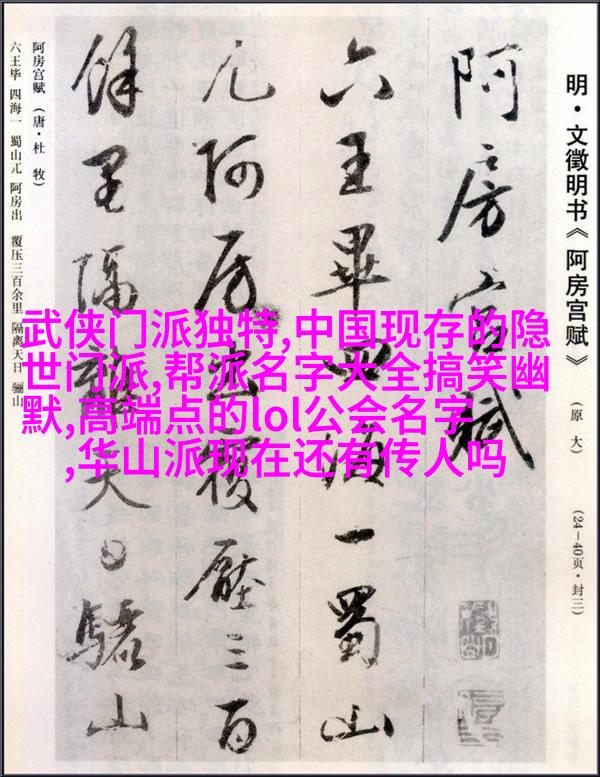 明·文徵明书《阿房宫赋》
(原大)
(24—40页·封三)
阿房宫赋
六王畢四海一蜀山
兀阿房出覆壓三百
餘里隔離天日驪山
阿房宫赋(唐·杜牧)
六王毕 四海一 蜀山兀 阿房出 覆压三百余里 隔离天日 骊山
武侠门派独特,中国现存的隐
世门派,帮派名字大全搞笑幽
默,高端点的lol公会名字
,华山派现在还有传人吗